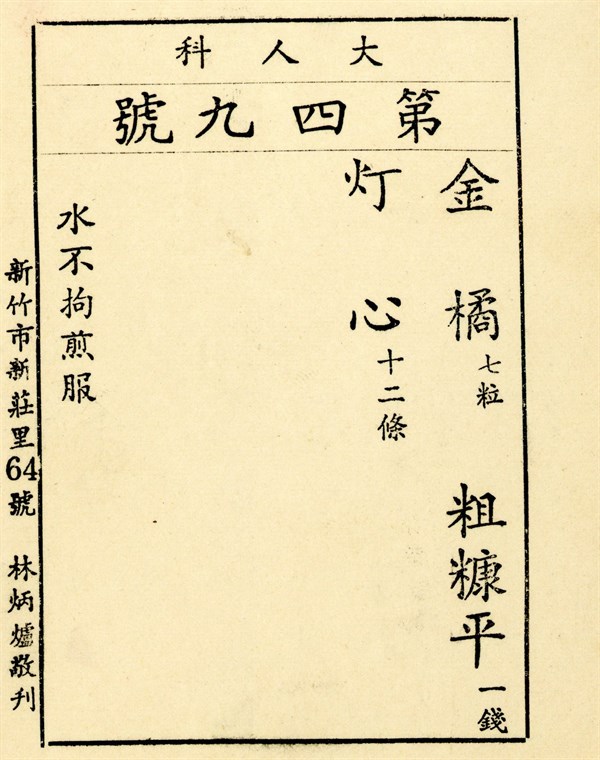 大人科
第四九號
金橘七粒 粗糠平一錢
灯心十二條
水不拘煎服
新竹市新莊里64號 林炳爐敬刊